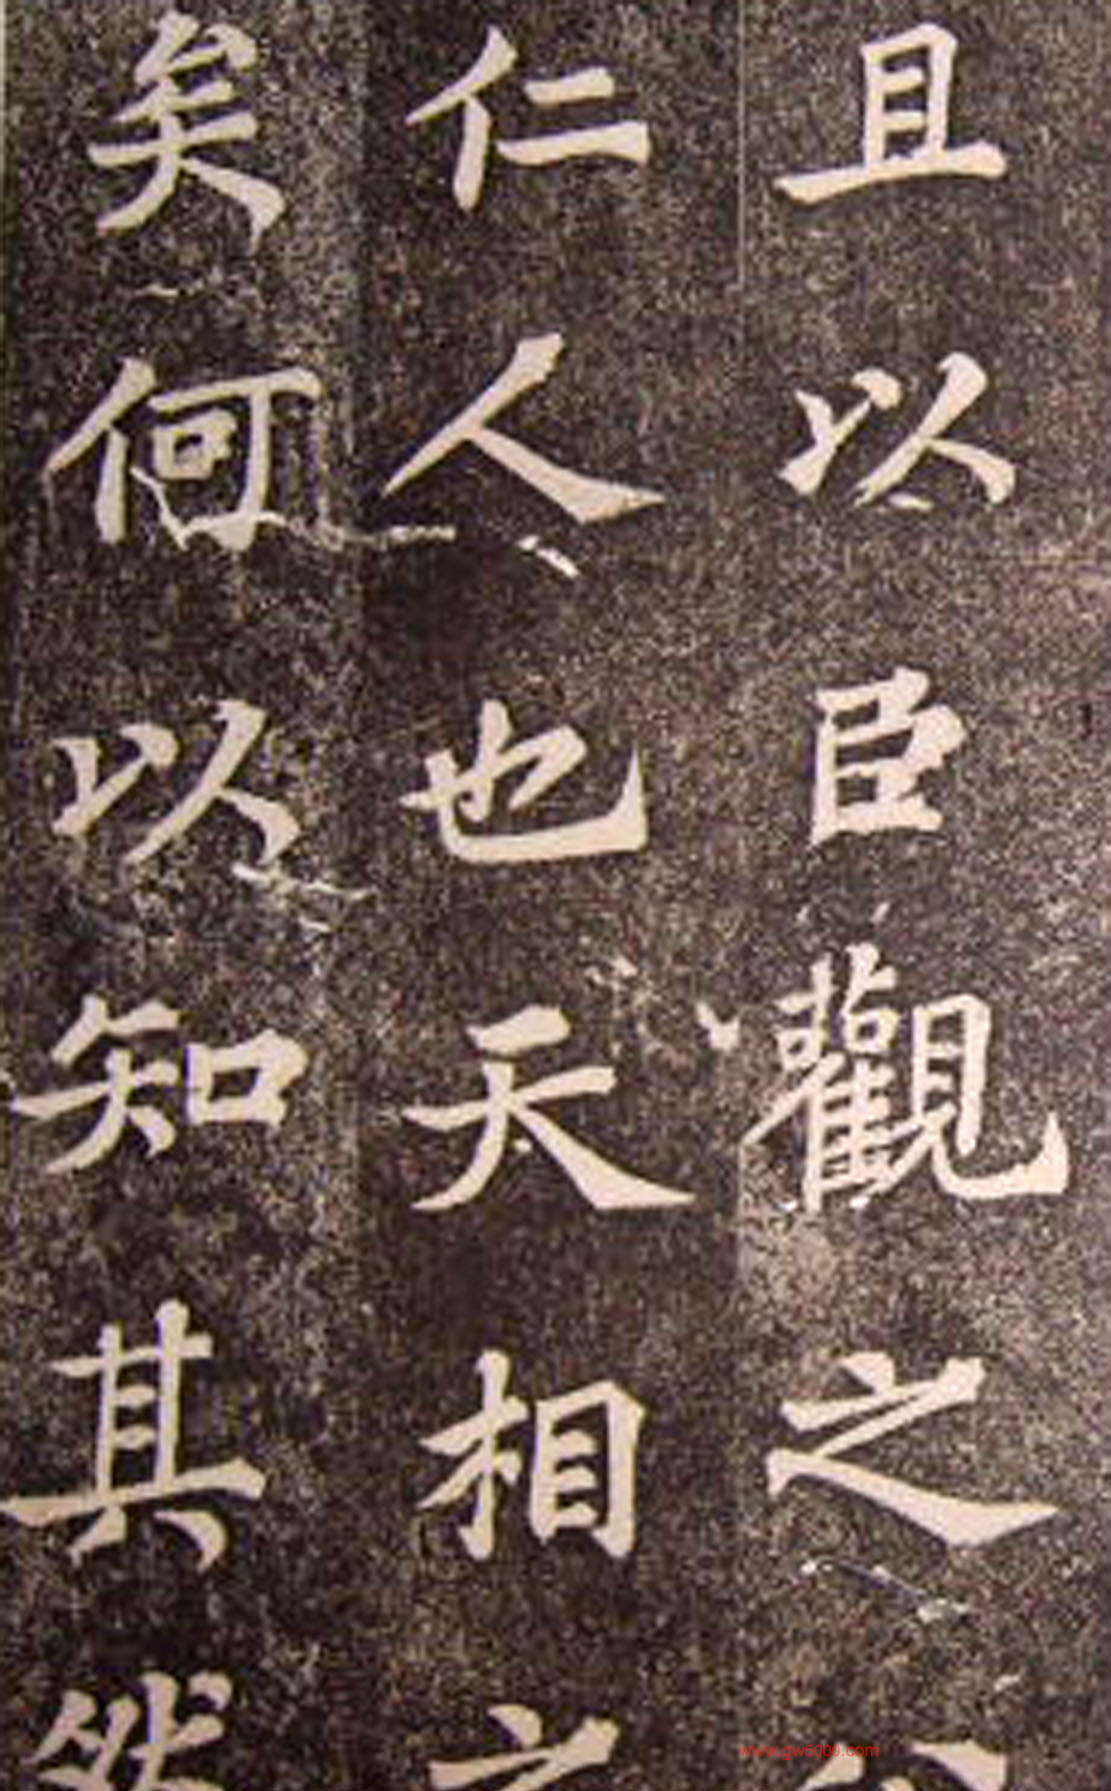 且以臣觀之公
仁人也天相之
矣何以知其然
www.gw5000.com